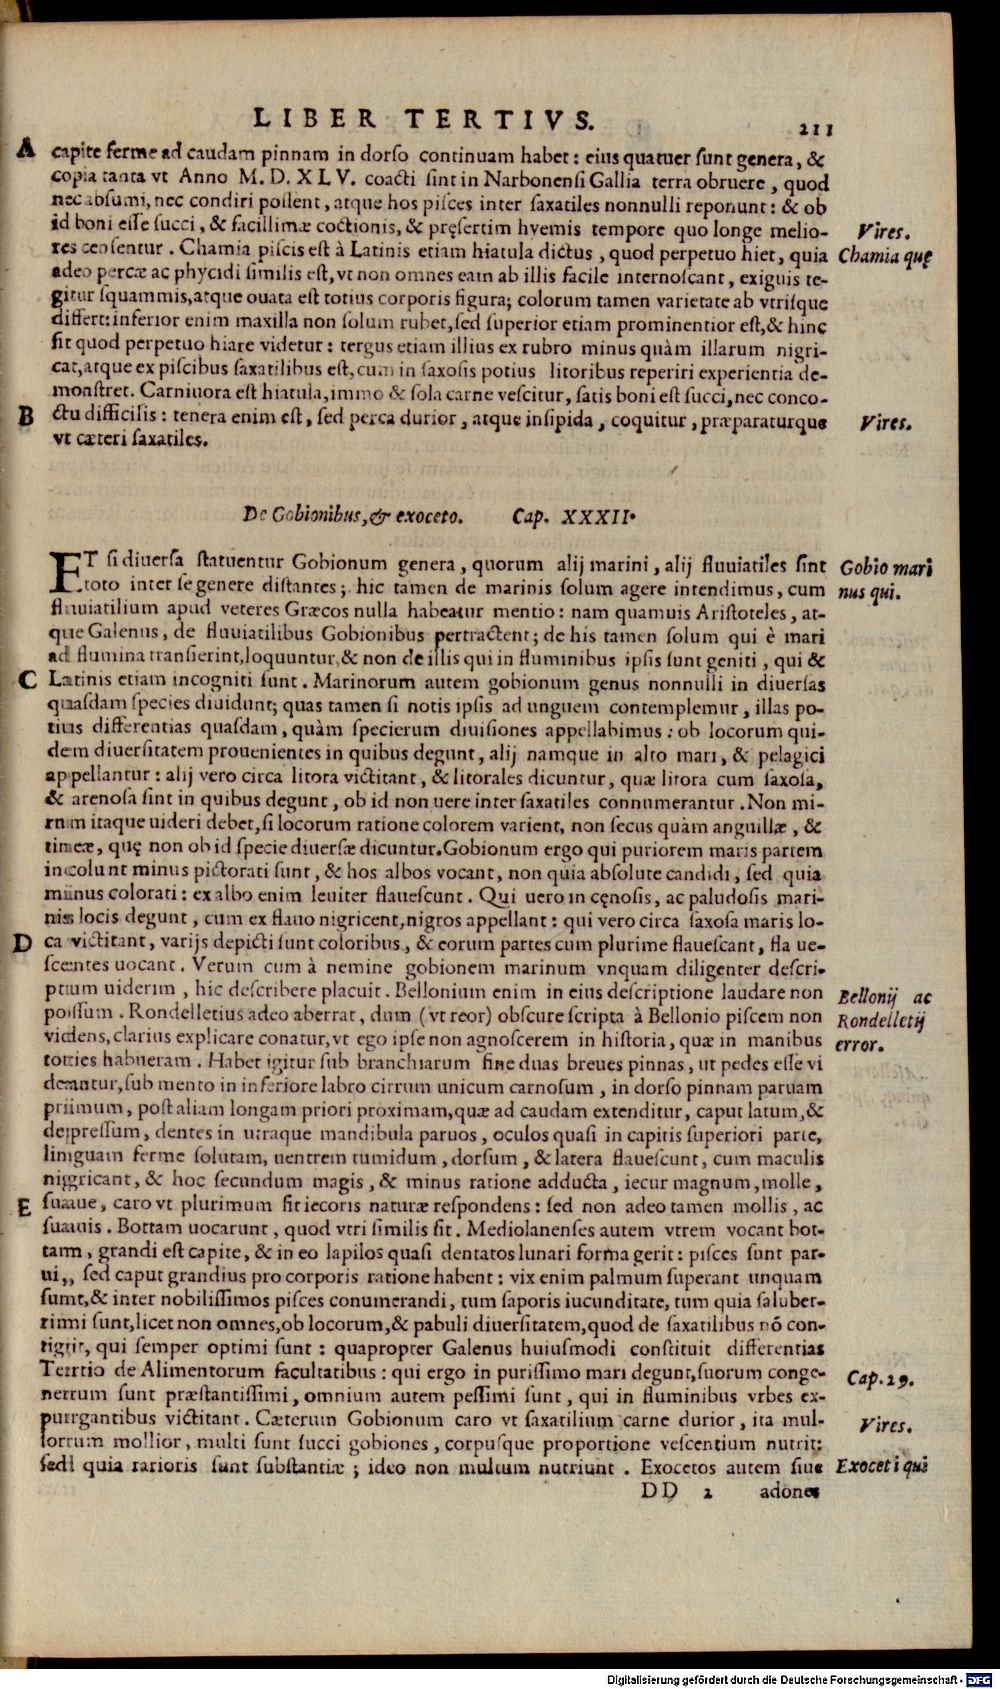 LIBER TERTIVS.
211
A
capite ferme ad caudam pinnam in dorso continuam habet: eius quatuer sunt genera, &
copia tanta vt Anno M. D. X L V. coacti sint in Narbonensi Gallia terra obruere, quod
nec absumi, nec condiri possent, atque hos pisces inter saxatiles nonnulli reponunt: & ob
id boni esse succi, & facillimæ coctionis, & pręsertim hyemis tempore quo longe melio-
Vires.
res censentur. Chamia piscis est à Latinis etiam hiatula dictus, quod perpetuo hiet, quia
Chamia quę
adeo percæ ac phycidi similis est, vt non omnes eam ab illis facile internoscant, exiguis te-
gitur squammis, atque ouata est totius corporis figura; colorum tamen varietate ab vtrisque
differt: inferior enim maxilla non solum rubet, sed superior etiam prominentior est, & hinc
fit quod perpetuo hiare videtur: tergus etiam illius ex rubro minus quàm illarum nigri-
cat, atque ex piscibus saxatilibus est, cum in saxosis potius litoribus reperiri experientia de-
monstret. Carniuora est hiatula, immo & sola carne vescitur, satis boni est succi, nec conco-
B
ctu difficilis: tenera enim est, sed perca durior, atque insipida, coquitur, præparaturque
Vires.
vt cæteri saxatiles.
De Gobionibus, & exoceto. Cap. XXXII.
ET si diuersa statuentur Gobionum genera, quorum alij marini, alij fluuiatiles sint
Gobio mari
toto inter se genere distantes; hic tamen de marinis solum agere intendimus, cum
nus qui.
fluuiatilium apud veteres Græcos nulla habeatur mentio: nam quamuis Aristoteles, at-
que Galenus, de fluuiatilibus Gobionibus pertractent; de his tamen solum qui è mari
ad flumina transierint, loquuntur, & non de illis qui in fluminibus ipsis sunt geniti, qui &
C
Latinis etiam incogniti sunt. Marinorum autem gobionum genus nonnulli in diuersas
quasdam species diuidunt; quas tamen si notis ipsis ad unguem contemplemur, illas po-
tius differentias quasdam, quàm specierum diuisiones appellabimus: ob locorum qui-
dem diuersitatem prouenientes in quibus degunt, alij namque in alto mari, & pelagici
appellantur: alij vero circa litora victitant, & litorales dicuntur, quæ litora cum saxosa,
& arenosa sint in quibus degunt, ob id non uere inter saxatiles connumerantur. Non mi-
rum itaque uideri debet, si locorum ratione colorem varient, non secus quàm anguillæ, &
tineæ, quę non ob id specie diuersæ dicuntur. Gobionum ergo qui puriorem maris partem
incolunt minus pictorati sunt, & hos albos vocant, non quia absolute candidi, sed quia
minus colorati: ex albo enim leuiter flauescunt. Qui uero in cęnosis, ac paludosis mari-
nis locis degunt, cum ex flauo nigricent, nigros appellant: qui vero circa saxosa maris lo-
D
ca victitant, varijs depicti sunt coloribus, & eorum partes cum plurime flauescant, fla ue-
scentes uocant. Verum cum à nemine gobionem marinum vnquam diligenter descri-
ptum uiderim, hic describere placuit. Bellonium enim in eius descriptione laudare non
Bellonij ac
possum. Rondelletius adeo aberrat, dum (vt reor) obscure scripta à Bellonio piscem non
Rondelletij
videns, clarius explicare conatur, vt ego ipse non agnoscerem in historia, quæ in manibus
error.
toties habueram. Habet igitur sub branchiarum fine duas breues pinnas, ut pedes esse vi
deantur, sub mento in inferiore labro cirrum unicum carnosum, in dorso pinnam paruam
primum, post aliam longam priori proximam, quæ ad caudam extenditur, caput latum, &
depressum, dentes in utraque mandibula paruos, oculos quasi in capitis superiori parte,
linguam ferme solutam, uentrem tumidum, dorsum, & latera flauescunt, cum maculis
nigricant, & hoc secundum magis, & minus ratione adducta, iecur magnum, molle,
E
suaue, caro vt plurimum fit iecoris naturæ respondens: sed non adeo tamen mollis, ac
suauis. Bottam uocarunt, quod vtri similis sit. Mediolanenses autem vtrem vocant bot-
tam, grandi est capite, & in eo lapilos quasi dentatos lunari forma gerit: pisces sunt par-
ui, sed caput grandius pro corporis ratione habent: vix enim palmum superant unquam
sunt, & inter nobilissimos pisces conumerandi, tum saporis iucunditate, tum quia saluber-
rimi sunt, licet non omnes, ob locorum, & pabuli diuersitatem, quod de saxatilibus nõ con-
tigit, qui semper optimi sunt: quapropter Galenus huiusmodi constituit differentias
Tertio de Alimentorum facultatibus: qui ergo in purissimo mari degunt, suorum conge-
Cap. 29.
nerum sunt præstantissimi, omnium autem pessimi sunt, qui in fluminibus vrbes ex-
purgantibus victitant. Cæterum Gobionum caro vt saxatilium carne durior, ita mul-
Vires.
lorum mollior, multi sunt succi gobiones, corpusque proportione vescentium nutrit:
sed quia rarioris sunt substantiæ; ideo non multum nutriunt. Exocetos autem siue
Exoceti qui
DD 2 adones
Digitalisierung gefördert durch die Deutsche Forschungsgemeinschaft - DFG